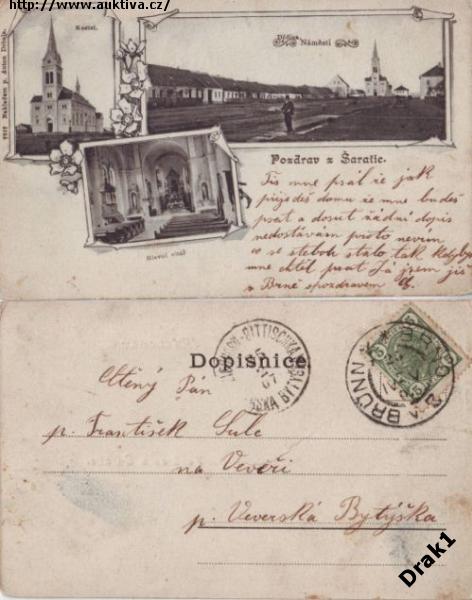 www.auktiva.cz/
Kostel.
Dědina
Náměstí
Nakladem p. Anton Doleje.
Hlavní oltář
Pozdrav z Šaratic.
Tis mne psál že jak
přijedeš domu že mne budeš
psat a dosut žádní dopis
nedostávám proto nevím
co se stebou stalo tak kdyby
mne chtěl psat Já jsem již
v Brně spozdravem
Dopisnice.
BITTISCHKA
BRÜNN
BRNO
Ctěný Pán
p. František Sule
na Veveři
p. Veverská Bytyška
Drak1